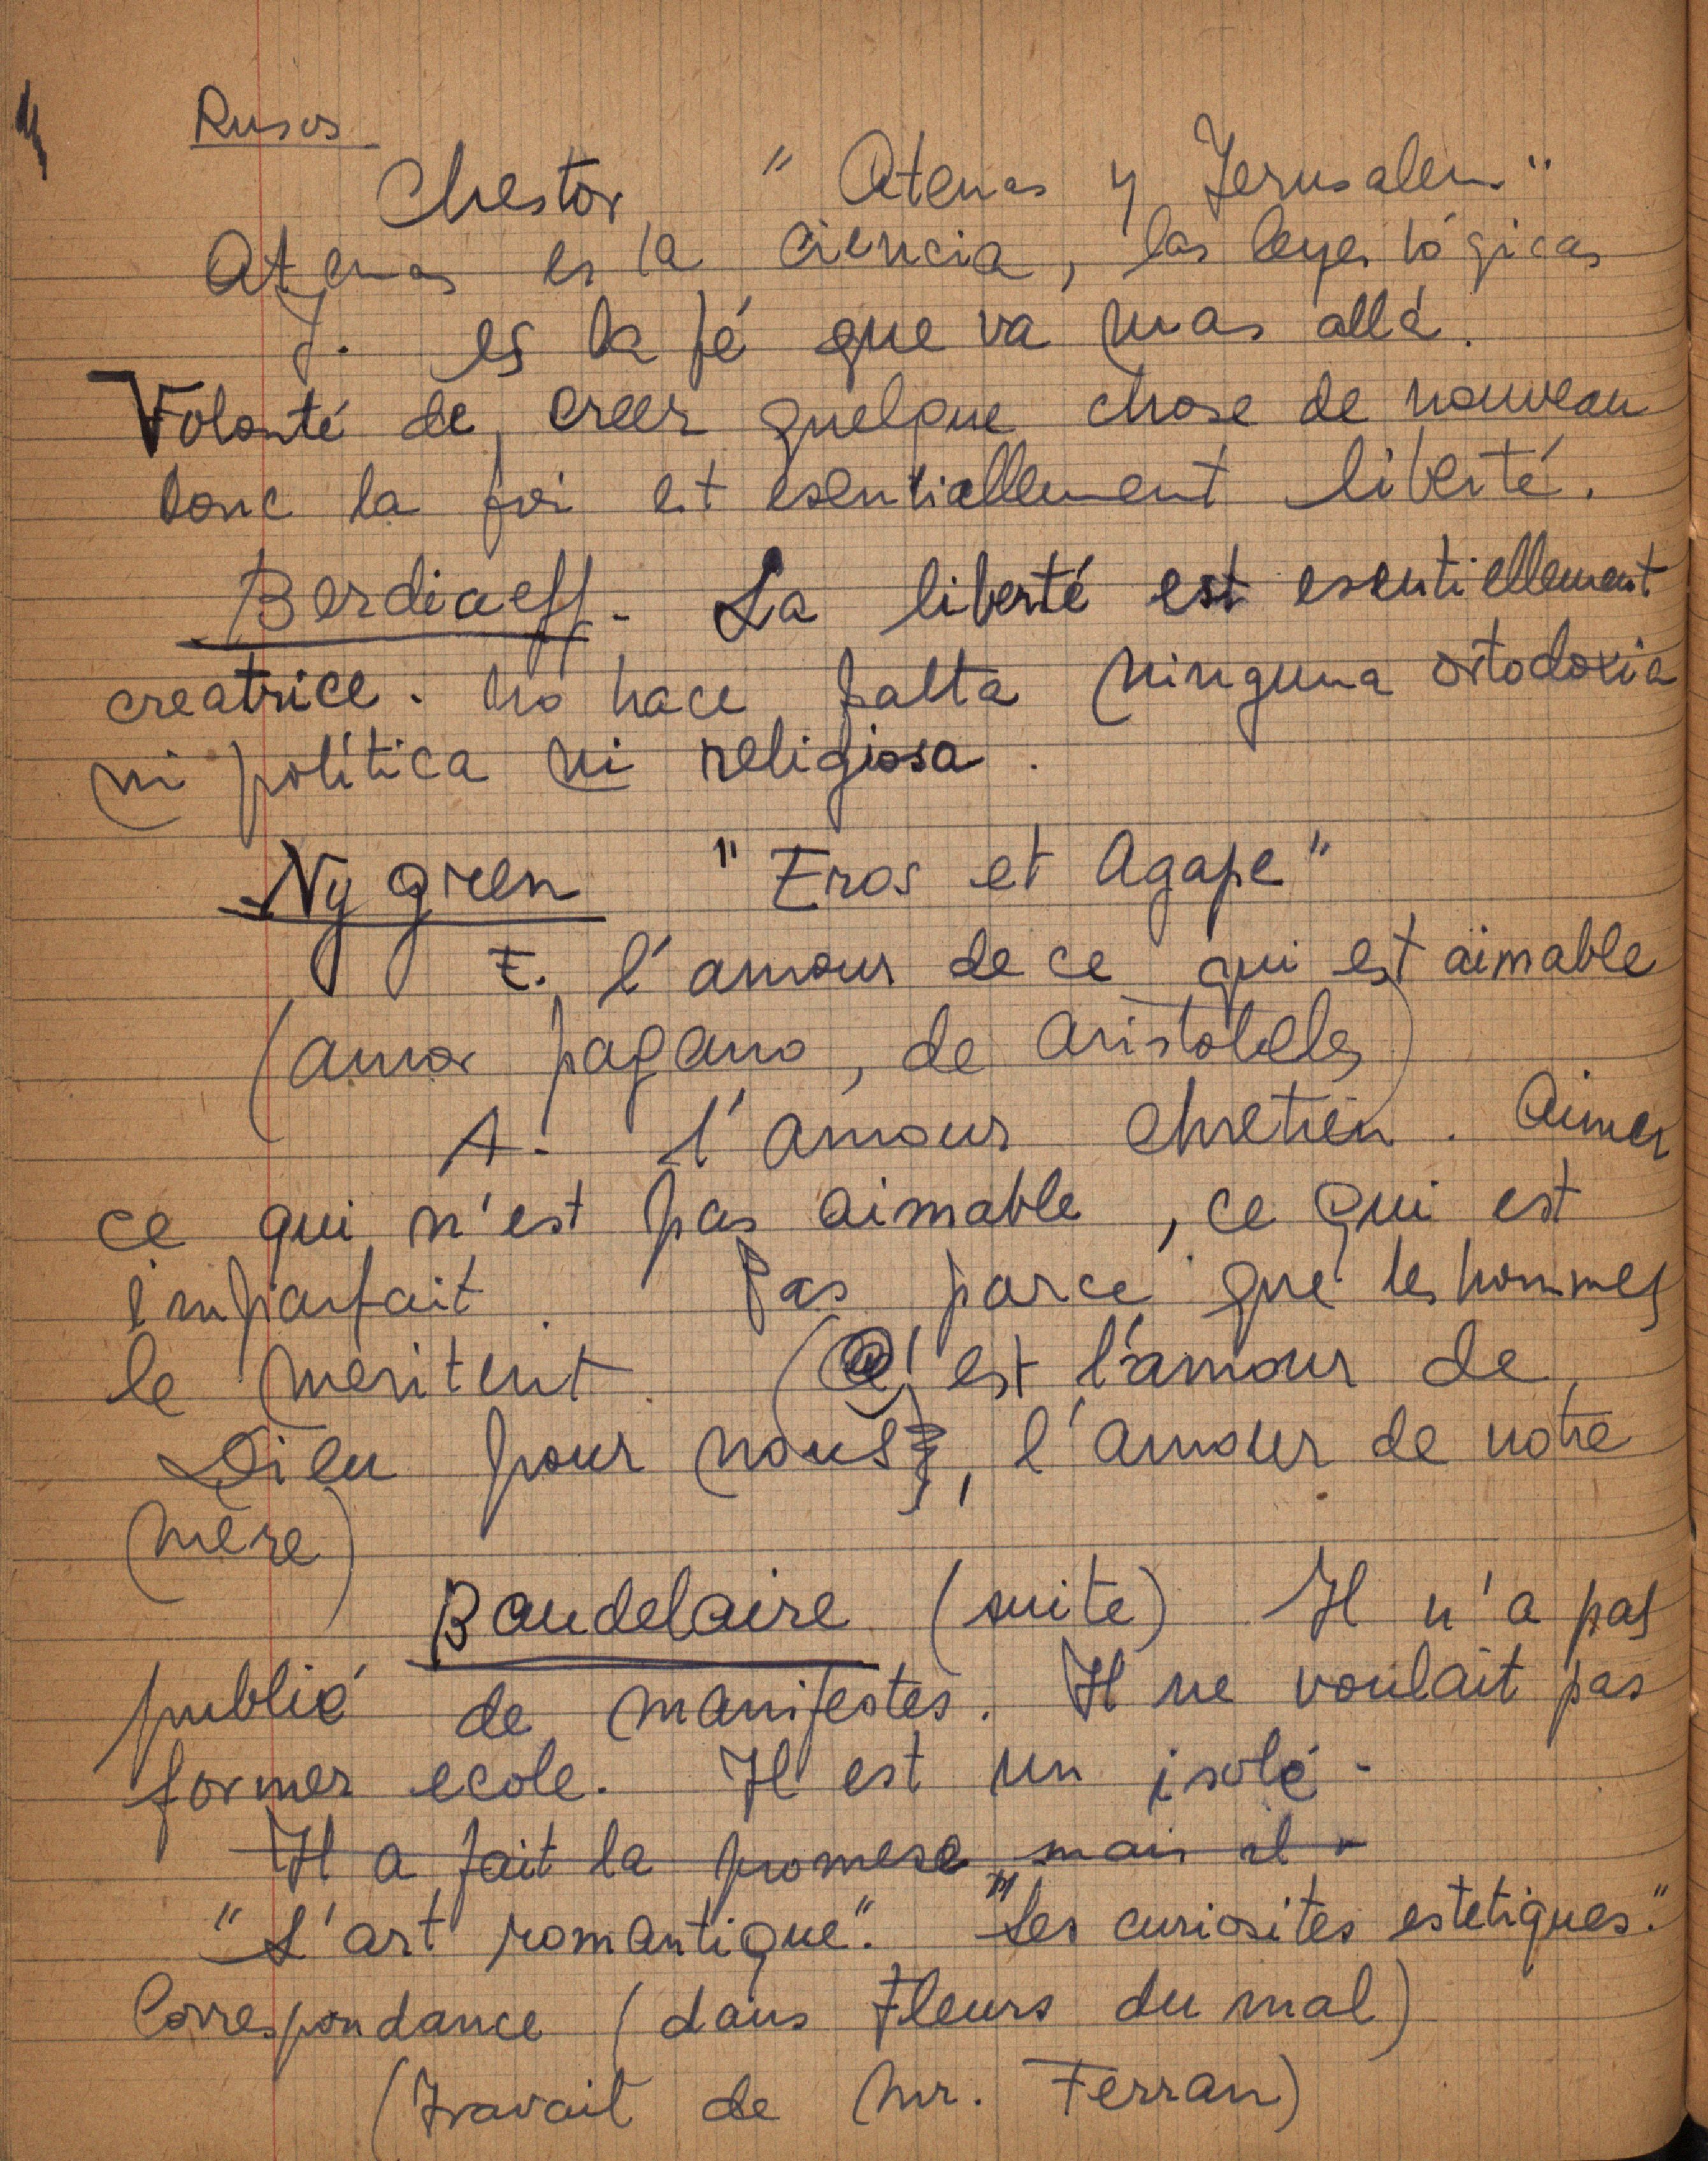 Rusos
Chestov " Atenas y Jerusalem "
Atenas es la ciencia, las leyes lógicas
J. es la fé que va mas allá.
Volonté de creer quelque chose de nouveau
donc la foi est esentiellement liberté.
Berdiaeff - La liberté est esentiellement
creatrice. No hace falta ninguna ortodoxia
ni política ni religiosa.
Nygren " Eros et Agape "
E. l'amour de ce qui est aimable
(amor pagano, de Aristoteles)
A. l'amour chretien. Aimer
ce qui n'est pas aimable, ce qui est
imparfait. Pas parce que les hommes
le meritent. (C'est l'amour de
Dieu pour nous, l'amour de notre
mère)
Baudelaire (suite) Il n'a pas
publié de manifestes. Il ne voulait pas
former ecole. Il est un isolé.
Il a fait la promese mais il
"L'art romantique". "Les curiosites estetiques."
Correspondance (dans Fleurs du mal)
(Travail de Mr. Ferran)